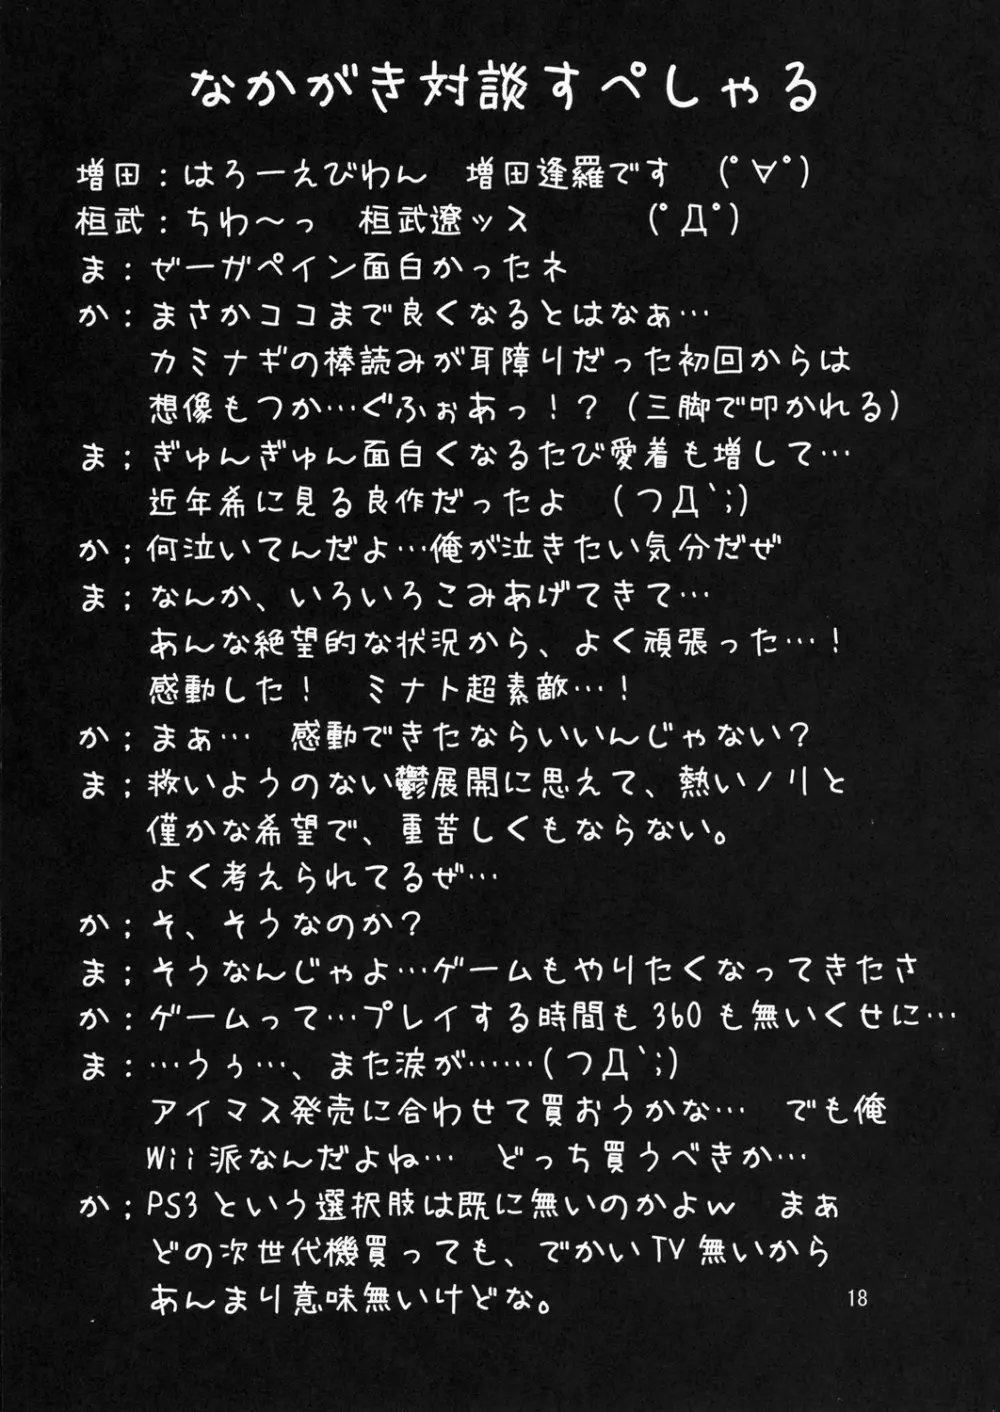 なかがき対談すぺしゃる
増田：はろーえびわん　増田逢羅です　(ﾟ∀ﾟ)
桓武：ちわ～っ　桓武遼ッス　(ﾟДﾟ)
ま：ゼーガペイン面白かったネ
か：まさかココまで良くなるとはなぁ…
カミナギの棒読みが耳障りだった初回からは
想像もつか…ぐふぉあっ！？（三脚で叩かれる）
ま；ぎゅんぎゅん面白くなるたび愛着も増して…
近年希に見る良作だったよ　(つД`;)
か；何泣いてんだよ…俺が泣きたい気分だぜ
ま；なんか、いろいろこみあげてきて…
あんな絶望的な状況から、よく頑張った…！
感動した！　ミナト超素敵…！
か；まぁ…　感動できたならいいんじゃない？
ま；救いようのない鬱展開に思えて、熱いノリと
僅かな希望で、重苦しくもならない。
よく考えられてるぜ…
か；そ、そうなのか？
ま；そうなんじゃよ…ゲームもやりたくなってきたさ
か：ゲームって…プレイする時間も360も無いくせに…
ま：…うぅ…、また涙が……(つД`;)
アイマス発売に合わせて買おうかな…　でも俺
Wii派なんだよね…　どっち買うべきか…
か；PS3という選択肢は既に無いのかよｗ　まぁ
どの次世代機買っても、でかいTV無いから
あんまり意味無いけどな。
18